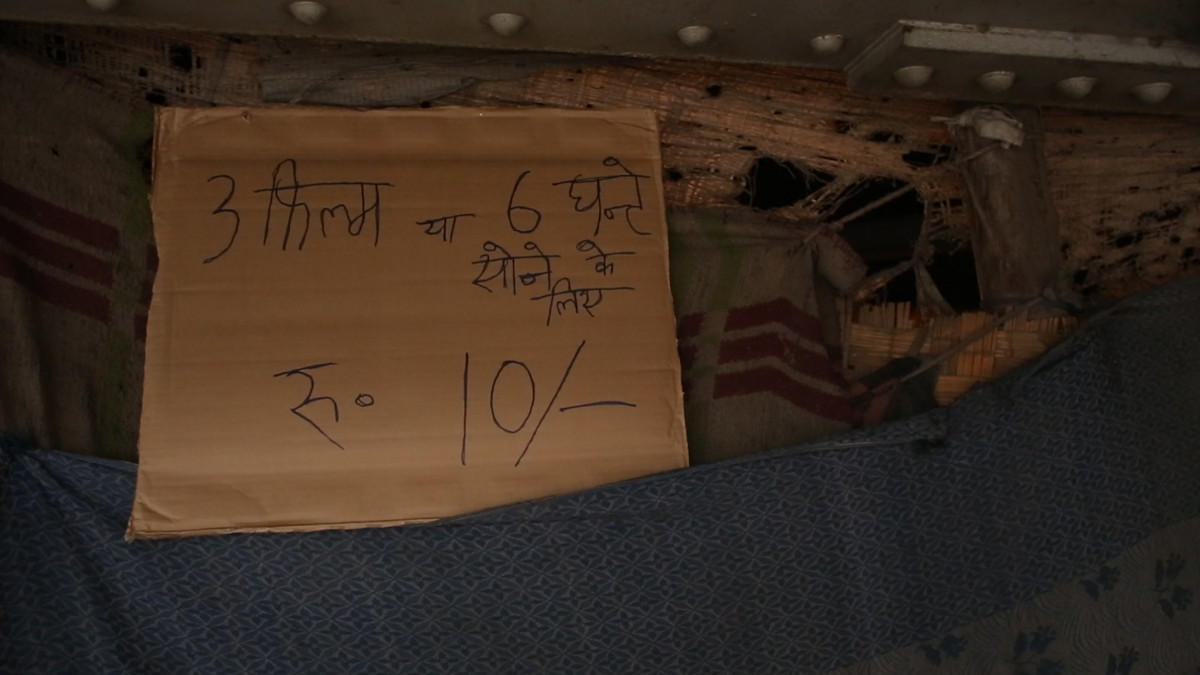 3 फिल्म या 6 घन्टे
सोने के
लिए
रु० 10/-